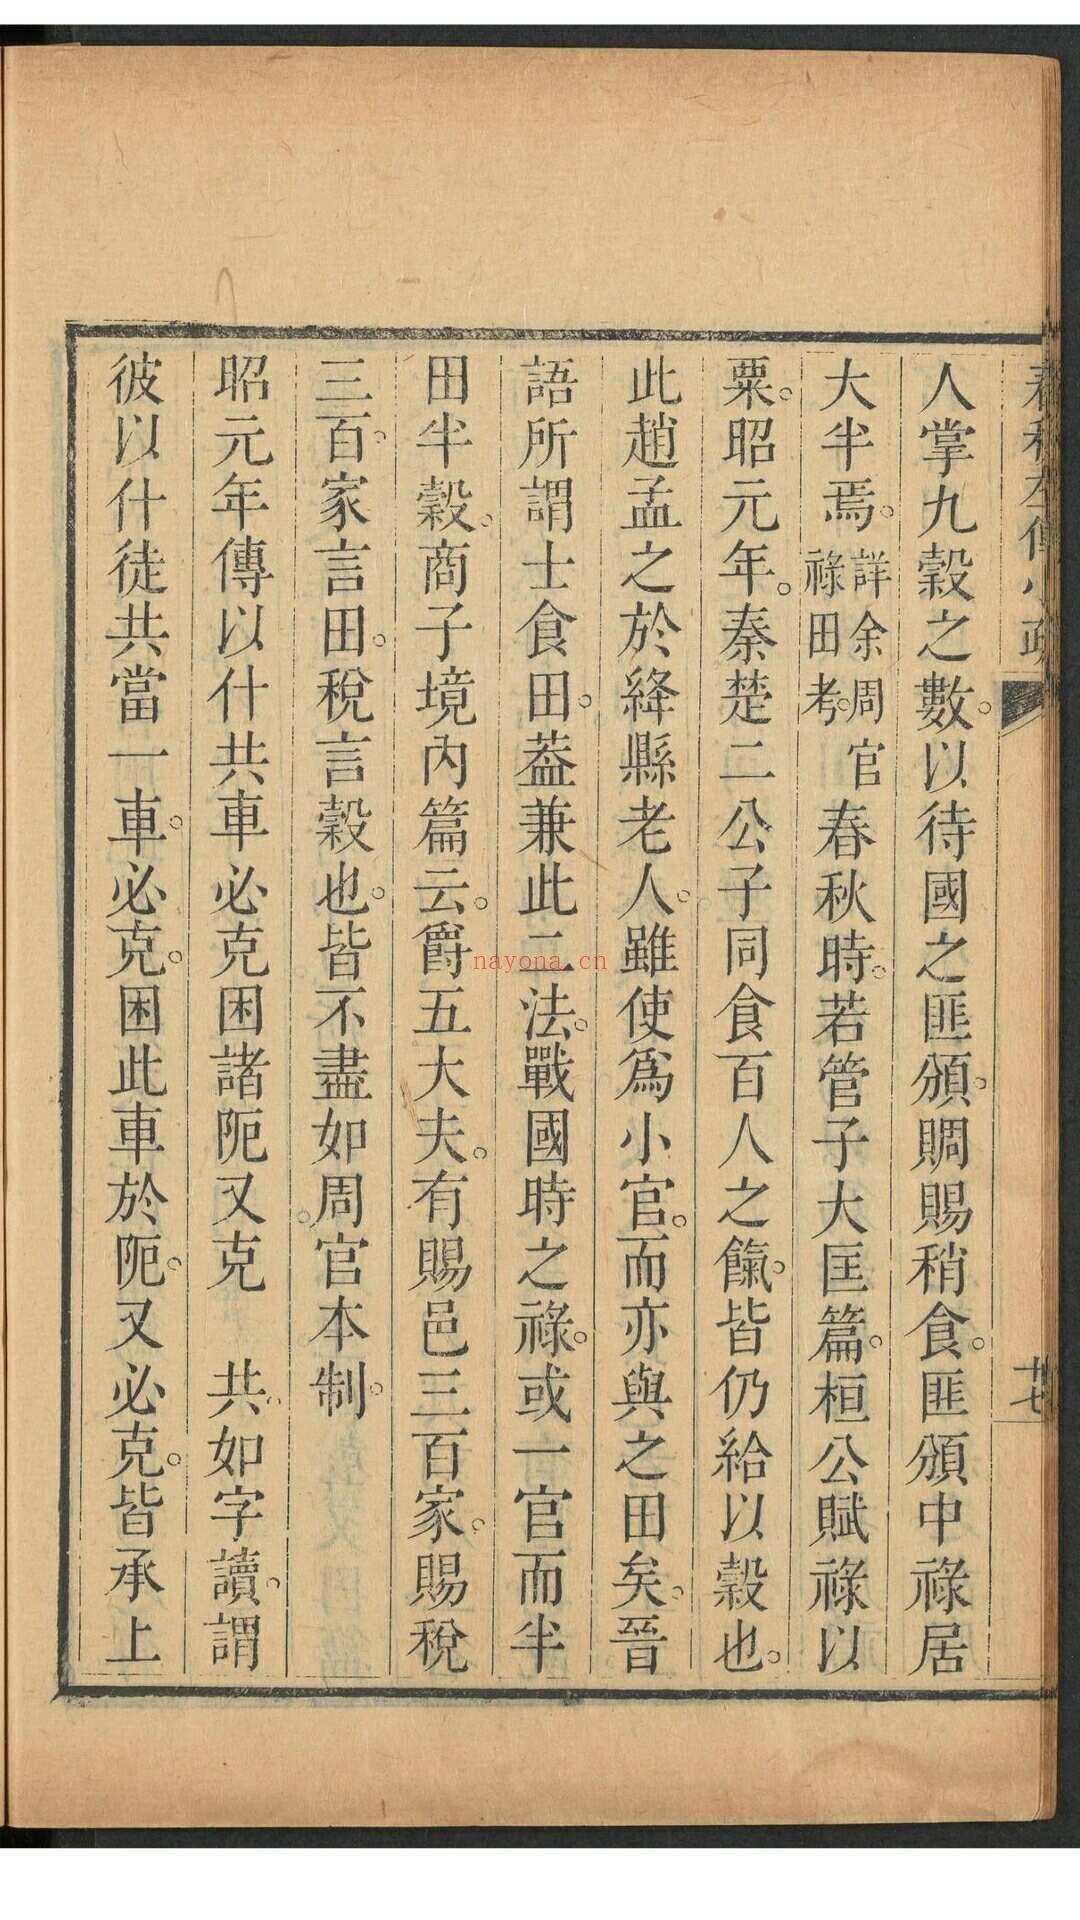 春秋左傳小疏
十七
人掌九穀之數。以待國之匪頒。賙賜稍食。匪頒中祿居
大半焉。詳余周官祿田考。春秋時。若管子大匡篇。桓公賦祿以
粟。昭元年。秦楚二公子同食百人之餼。皆仍給以穀也。
此趙孟之於絳縣老人。雖使爲小官。而亦與之田矣。晉
語所謂士食田。葢兼此二法。戰國時之祿。或一官而半
田半穀。商子境內篇云。爵五大夫。有賜邑三百家。賜稅
三百。家言田。稅言穀也。皆不盡如周官本制。
昭元年傳以什共車必克困諸阨又克　共。如字讀。謂
彼以什徒共當一車。必克。困此車於阨。又必克。皆承上
nayona.cn